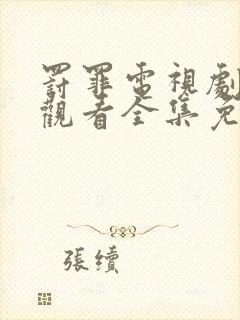 罰罪電視劇
觀看全集免
張續